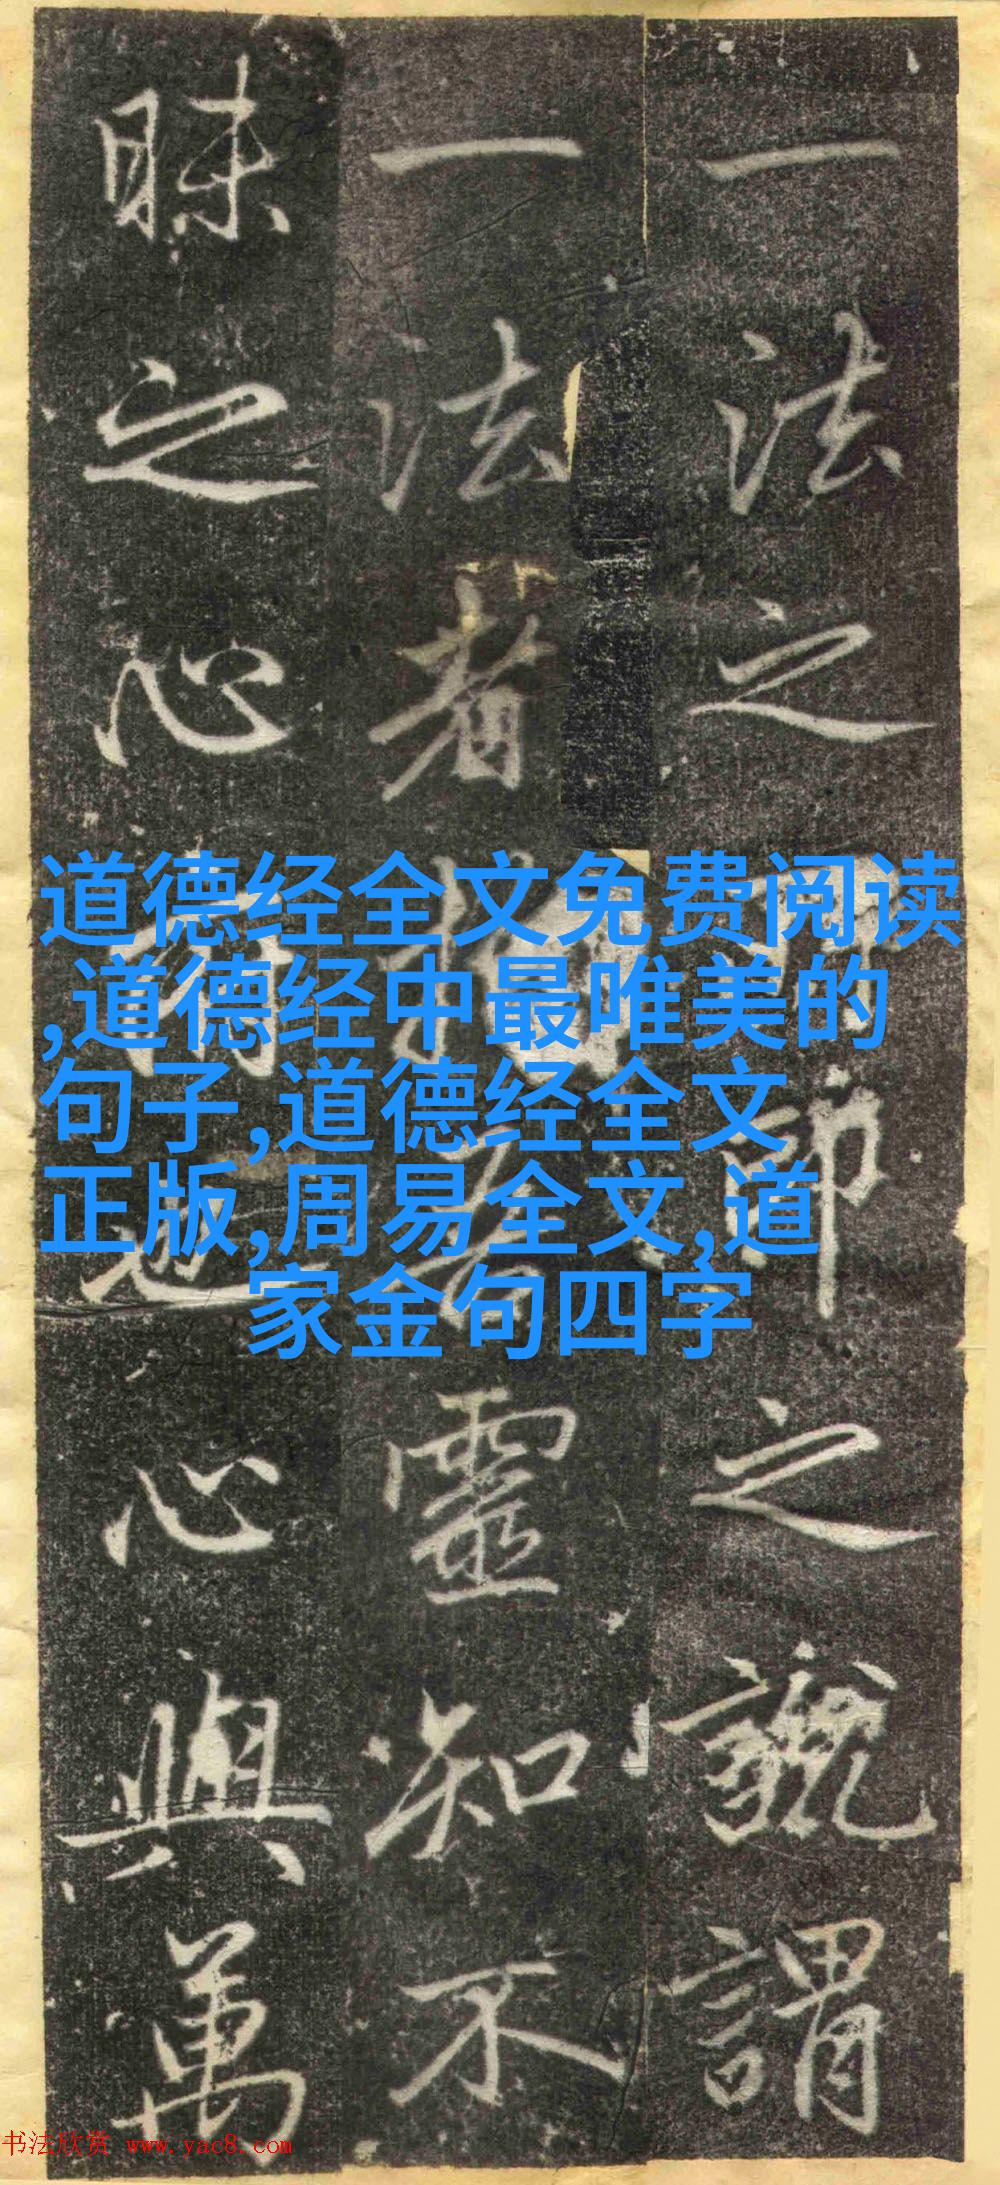 一法之師之說謂
一法者靈知不
昧之心也心與萬
道德经全文免费阅读
,道德经中最唯美的
句子,道德经全文
正版,周易全文,道
家金句四字
书法欣赏 www.yac8.com